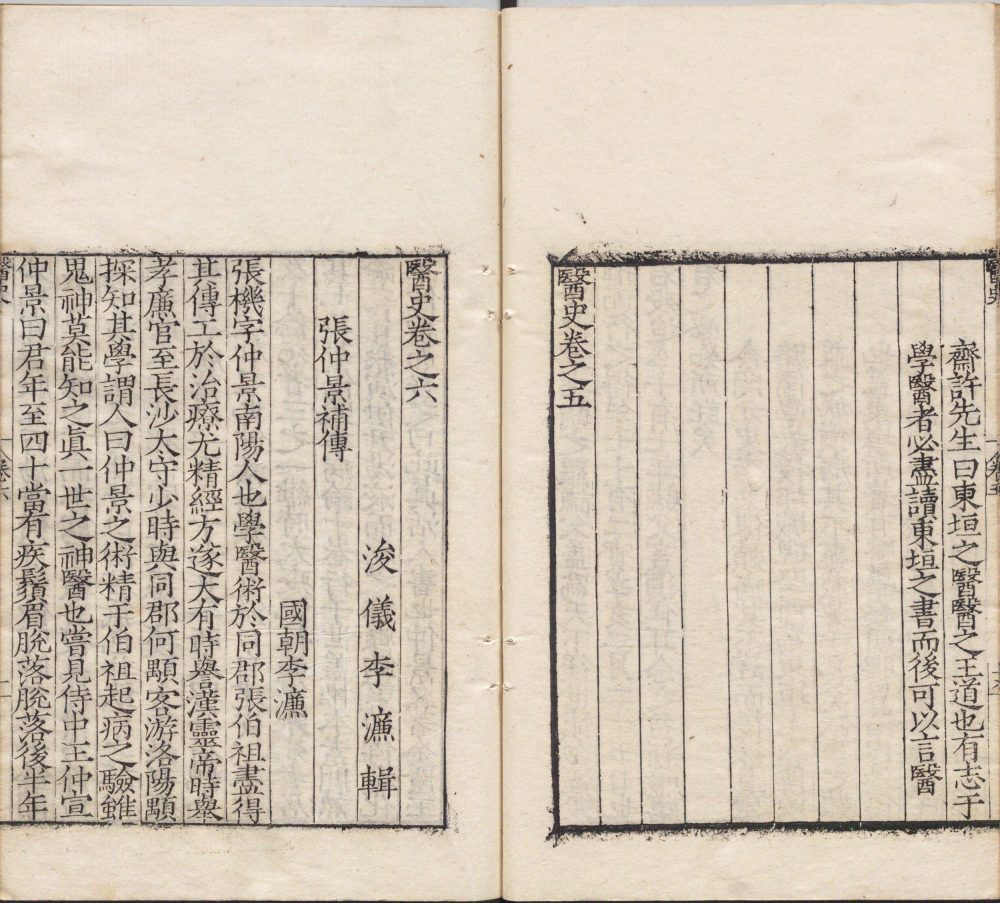 齋許先生曰東垣之醫醫之王道也有志于
學醫者必盡讀東垣之書而後可以言醫
醫史卷之五
醫史卷之六
浚儀李濂輯
張仲景補傳
國朝李濂
張機字仲景南陽人也學醫術於同郡張伯祖盡得
其傳工於治療尤精經方遂大有時譽漢靈帝時舉
孝廉官至長沙太守少時與同郡何顒客游洛陽顒
探知其學謂人曰仲景之術精于伯祖起病之驗雖
鬼神莫能知之真一世之神醫也嘗見侍中王仲宣
仲景曰君年至四十當有疾鬚眉脫落脫落後半年